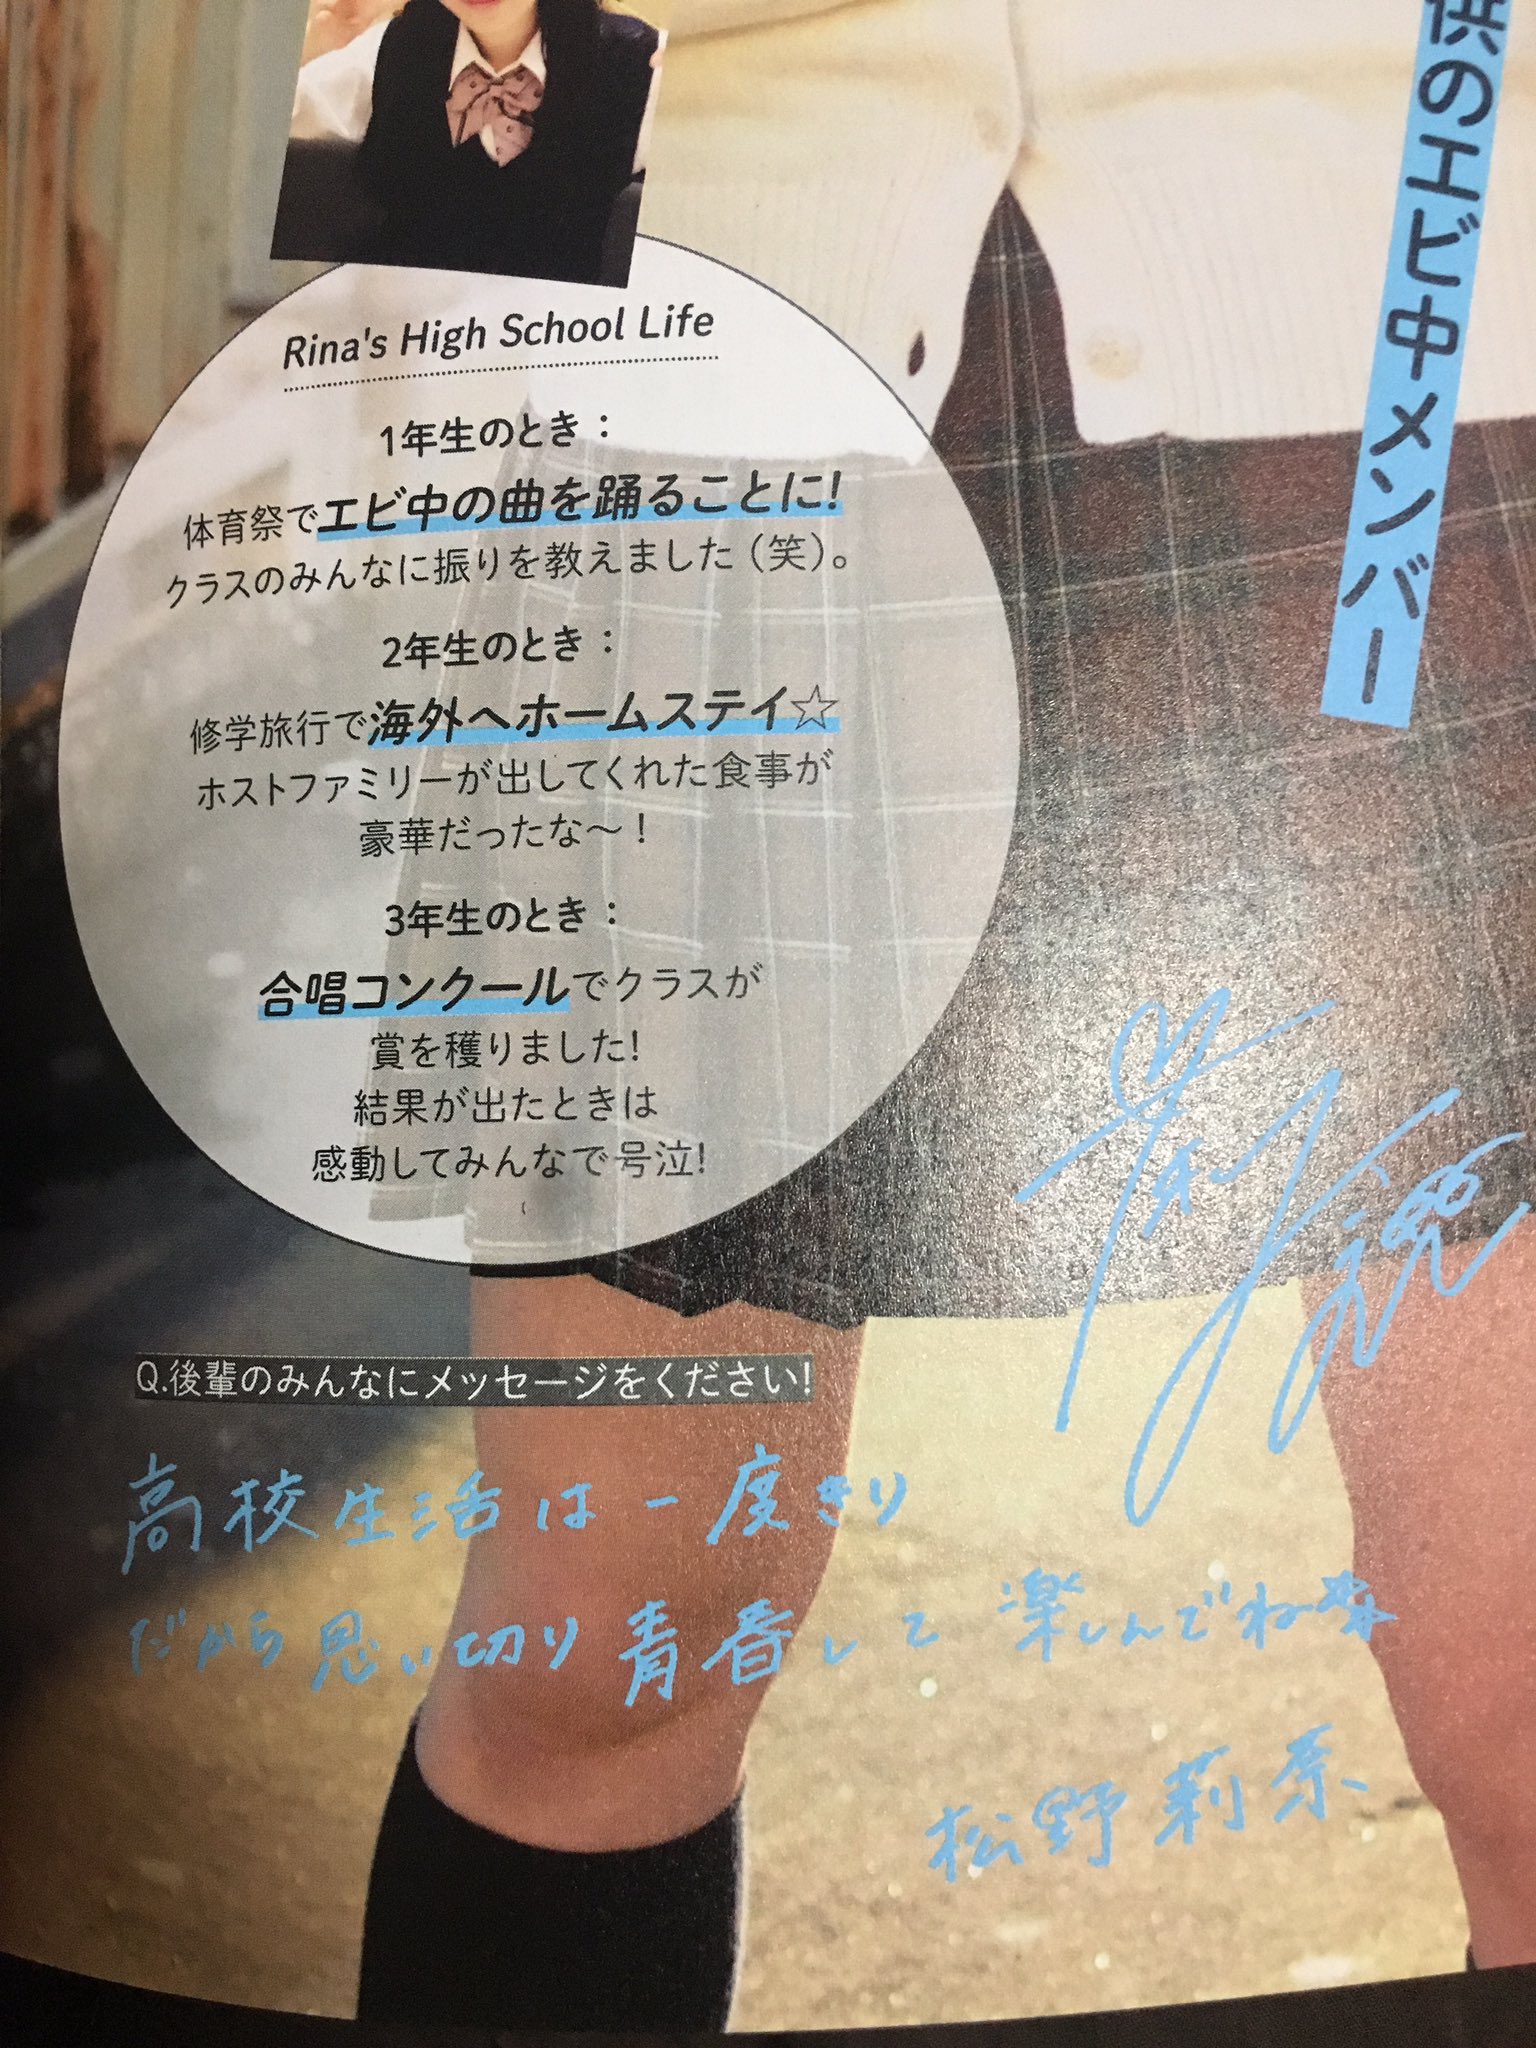 供のエビ中メンバー
Rina's High School Life
1年生のとき：
体育祭でエビ中の曲を踊ることに!
クラスのみんなに振りを教えました（笑）。
2年生のとき：
修学旅行で海外へホームステイ☆
ホストファミリーが出してくれた食事が
豪華だったな〜！
3年生のとき：
合唱コンクールでクラスが
賞を穫りました!
結果が出たときは
感動してみんなで号泣!
Q.後輩のみんなにメッセージをください!
高校生活は一度きり
だから思い切り青春して楽しんでね
松野莉奈